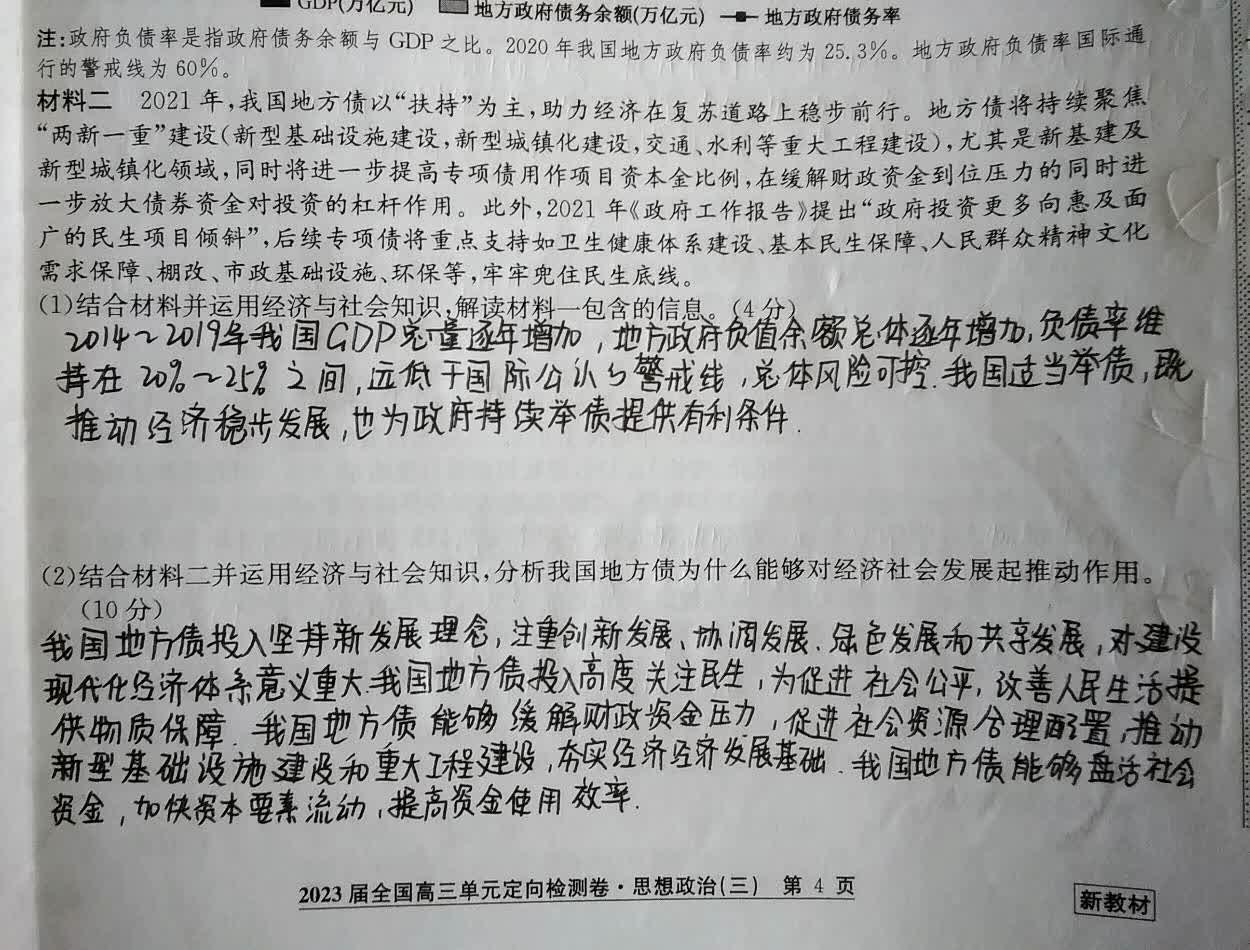 GDP(万亿元) 地方政府债务余额(万亿元) 地方政府债务率
注:政府负债率是指政府债务余额与 GDP 之比。2020 年我国地方政府负债率约为 25.3%。地方政府负债率国际通
行的警戒线为 60%。
材料二 2021 年,我国地方债以“扶持”为主,助力经济在复苏道路上稳步前行。地方债将持续聚焦
“两新一重”建设(新型基础设施建设,新型城镇化建设,交通、水利等重大工程建设),尤其是新基建及
新型城镇化领域,同时将进一步提高专项债用作项目资本金比例,在缓解财政资金到位压力的同时进
一步放大债券资金对投资的杠杆作用。此外,2021 年《政府工作报告》提出“政府投资更多向惠及面
广的民生项目倾斜”,后续专项债将重点支持如卫生健康体系建设、基本民生保障、人民群众精神文化
需求保障、棚改、市政基础设施、环保等,牢牢兜住民生底线。
(1)结合材料并运用经济与社会知识,解读材料一包含的信息。(4 分)
2014~2019年我国GDP总量逐年增加,地方政府负值余额总体逐年增加,负债率维
持在 20%~25% 之间,远低于国际公认的警戒线,总体风险可控.我国适当举债,既
推动经济稳步发展,也为政府持续举债提供有利条件.
(2)结合材料二并运用经济与社会知识,分析我国地方债为什么能够对经济社会发展起推动作用。
(10 分)
我国地方债投入坚持新发展理念,注重创新发展、协调发展.绿色发展和共享发展,对建设
现代化经济体系意义重大.我国地方债投入高度关注民生,为促进社会公平,改善人民生活提
供物质保障.我国地方债能够缓解财政资金压力,促进社会资源合理配置,推动
新型基础设施建设和重大工程建设,夯实经济经济发展基础.我国地方债能够盘活社会
资金,加快资本要素流动,提高资金使用效率.
2023 届全国高三单元定向检测卷·思想政治(三) 第 4 页
新教材